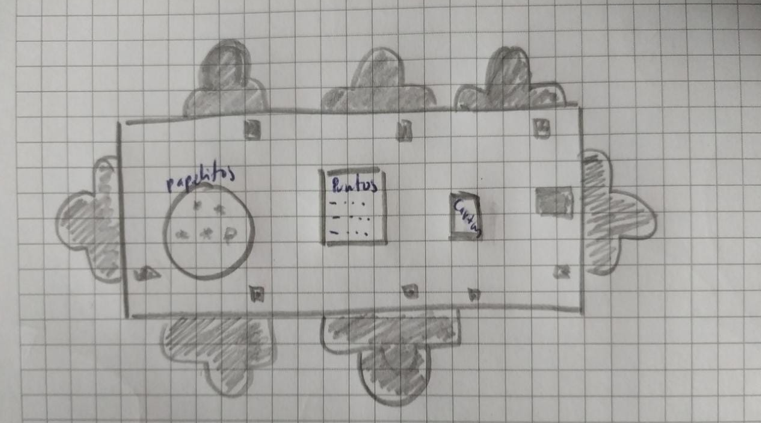 papelitos
Puntos
Cartas